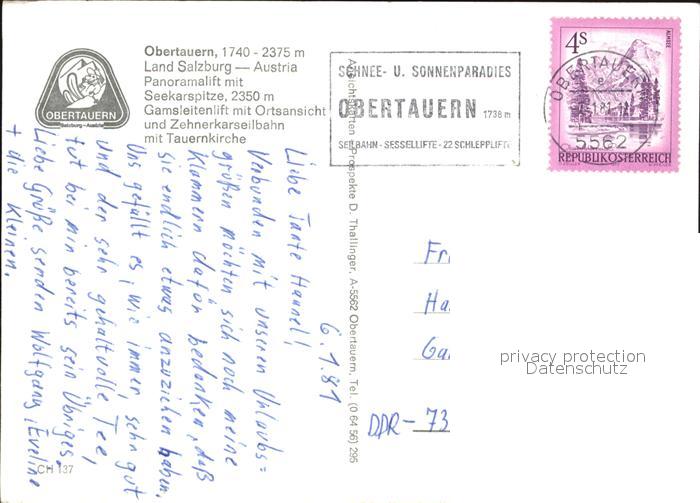 Obertauern, 1740 - 2375 m
Land Salzburg — Austria
Panoramalift mit
Seekarspitze, 2350 m
Gamsleitenlift mit Ortsansicht
und Zehnerkarseilbahn
mit Tauernkirche
OBERTAUERN
Salzburg - Austria
SCHNEE- U. SONNENPARADIES
OBERTAUERN 1738 m
SEILBAHN - SESSELLIFTE - 22 SCHLEPPLIFTE
4 S
ALMSEE
OBERTAUERN
5562
REPUBLIK ÖSTERREICH
6.1.81
Liebe Tante Hannel!
Verbunden mit unseren Urlaubs=
grüßen möchten sich noch meine
Klammern dafür bedanken, daß
sie endlich etwas anzuziehen haben.
Uns gefällt es, wie immer sehr gut
und der sehr gehaltvolle Tee,
tut bei mir bereits sein Übriges!
Liebe Grüße senden Wolfgang, Eveline
+ die Kleinen.
Ansichtskarten Prospekte D. Thallinger, A-5562 Obertauern, Tel. (0 64 56) 295
Fr.
Ha
Ga
DDR - 73
privacy protection
Datenschutz
CH 137